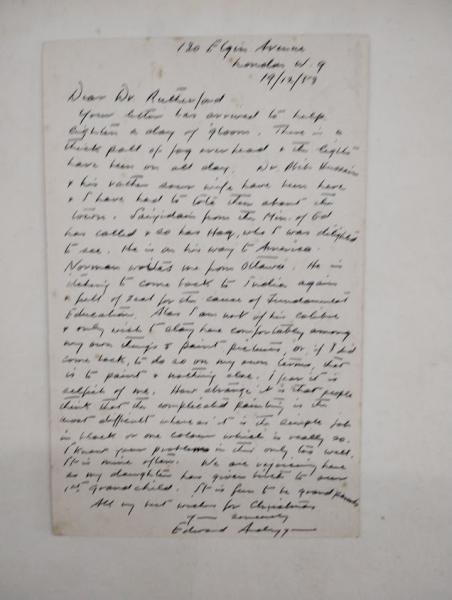 180 Elgin Avenue
London W. 9
19/12/53
Dear Dr. Rutherford
Your letter has arrived to help
lighten a day of gloom. There is a
thick pall of fog over head & the lights
have been on all day. Dr. Abid Hussain
& his rather dour wife have been here
& I have had to tote them about the
town. Saiyidain from the Min. of Ed
has called & so has Haq, who I was delighted
to see. He is on his way to America.
Norman writes me from Ottawa. He is
itching to come back to India again
& full of zeal for the cause of Fundamental
Education. Alas I am not of his calibre
& only wish to stay here comfortably among
my own things & paint pictures, or if I did
come back, to do so on my own terms, that
is to paint & nothing else. I fear it is
selfish of me. How strange it is that people
think that the complicated painting is the
most difficult where as it is the simple job
in black or one colour which is really so.
I know your problems in this only too well.
It is mine often. We are rejoicing here
as my daughter has given birth to our
1st grandchild. It is fun to be grand parents
All my best wishes for Christmas
Y— sincerely
Edward